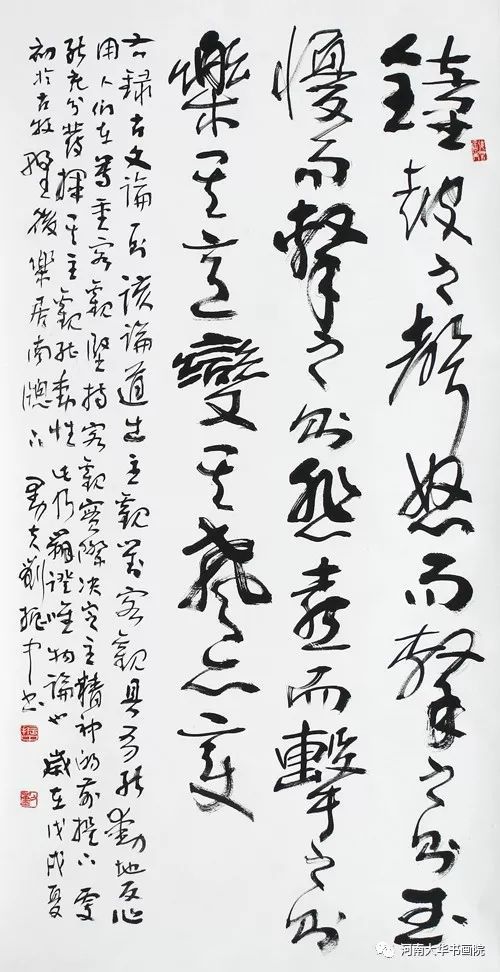 鐘鼓之聲怒而擊之則武
憂而擊之則悲喜而擊之則
樂其意變其聲亦變
右録古文論則該論道出主觀對客觀具有能動地反作
用人們在尊重客觀堅持客觀實際决定主精神的前提下要
能充分發揮其主觀能動性此乃辯證唯物論也歲在戊戌夏
初於古牧野後樂居南窗下劉振中書
河南大华书画院